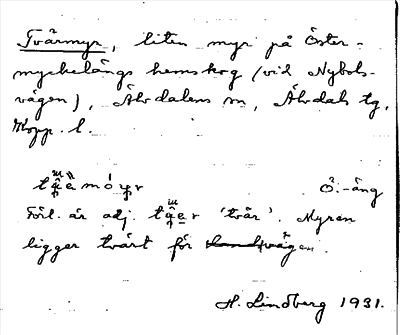 Tvärmyr, liten myr på Öster-
myckelängs hemskog (vid Nybols-
vägen), Älvdalens sn, Älvdals tg,
Kopp. l.
Ö.-äng
Förl. är adj. 'tvär'. Myren
ligger tvärt för vägen.
H. Lindberg 1931.